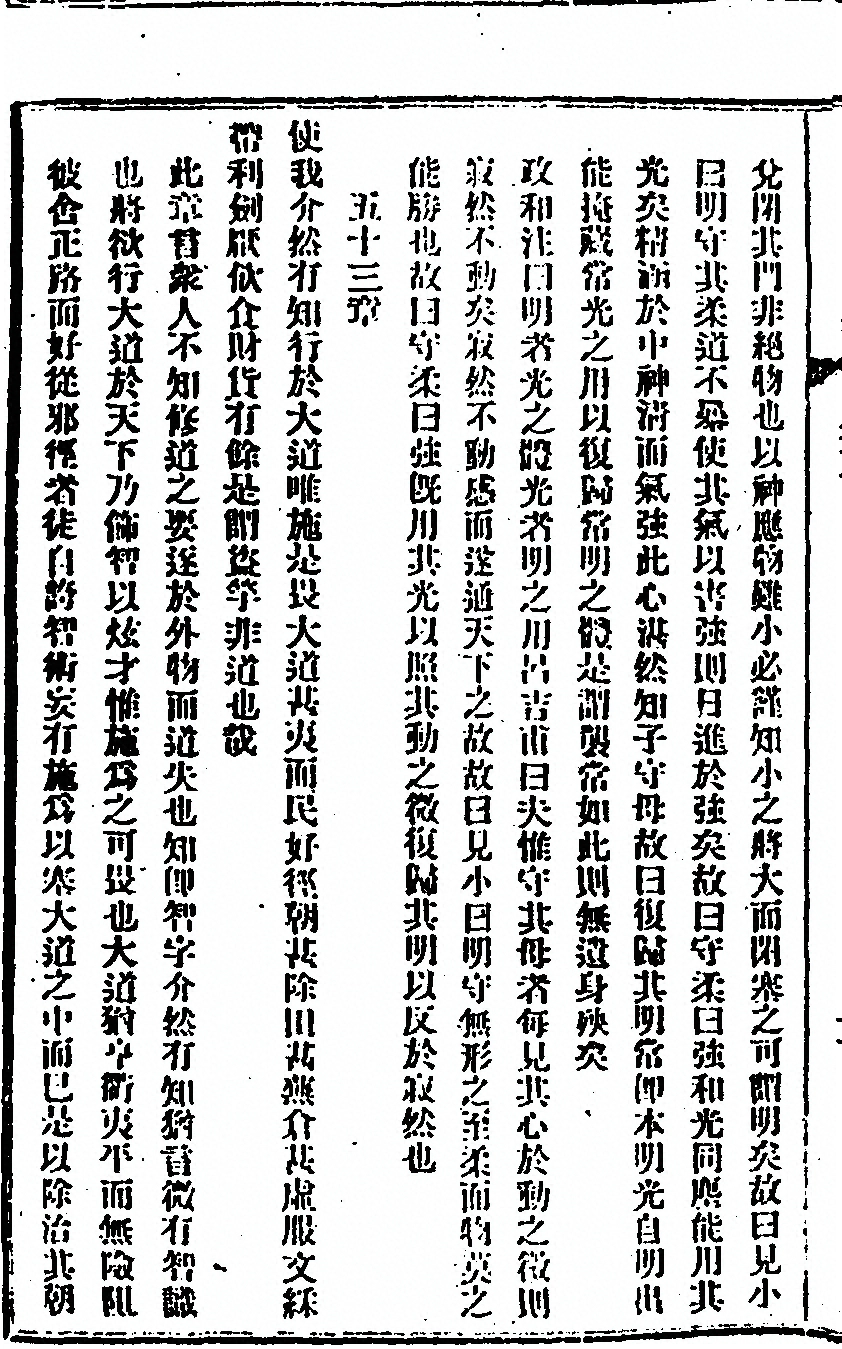 兌閉其門非絕物也以神應物雖小必謹知小之將大而閉塞之可謂明矣故曰見小
曰明守其柔道不暴使其氣以害強則日進於強矣故曰守柔曰強和光同塵能用其
光矣精涵於中神清而氣強此心湛然知子守母故曰復歸其明常即本明光自明出
能掩藏常光之用以復歸常明之體是謂襲常如此則無遺身殃矣
政和注曰明者光之體光者明之用呂吉甫曰夫惟守其母者每見其心於動之微則
寂然不動矣寂然不動感而遂通天下之故故曰見小曰明守無形之至柔而物莫之
能勝也故曰守柔曰強既用其光以照其動之微復歸其明以反於寂然也
五十三章
使我介然有知行於大道唯施是畏大道甚夷而民好徑朝甚除田甚蕪倉甚虛服文綵
帶利劍厭飲食財貨有餘是謂盜竽非道也哉
此章言衆人不知修道之要逐於外物而道失也知即智字介然有知猶言微有智識
也將欲行大道於天下乃飾智以炫才惟施爲之可畏也大道猶亨衢夷平而無險阻
彼舍正路而好從邪徑者徒自誇智術妄有施爲以塞大道之中而已是以除治其朝